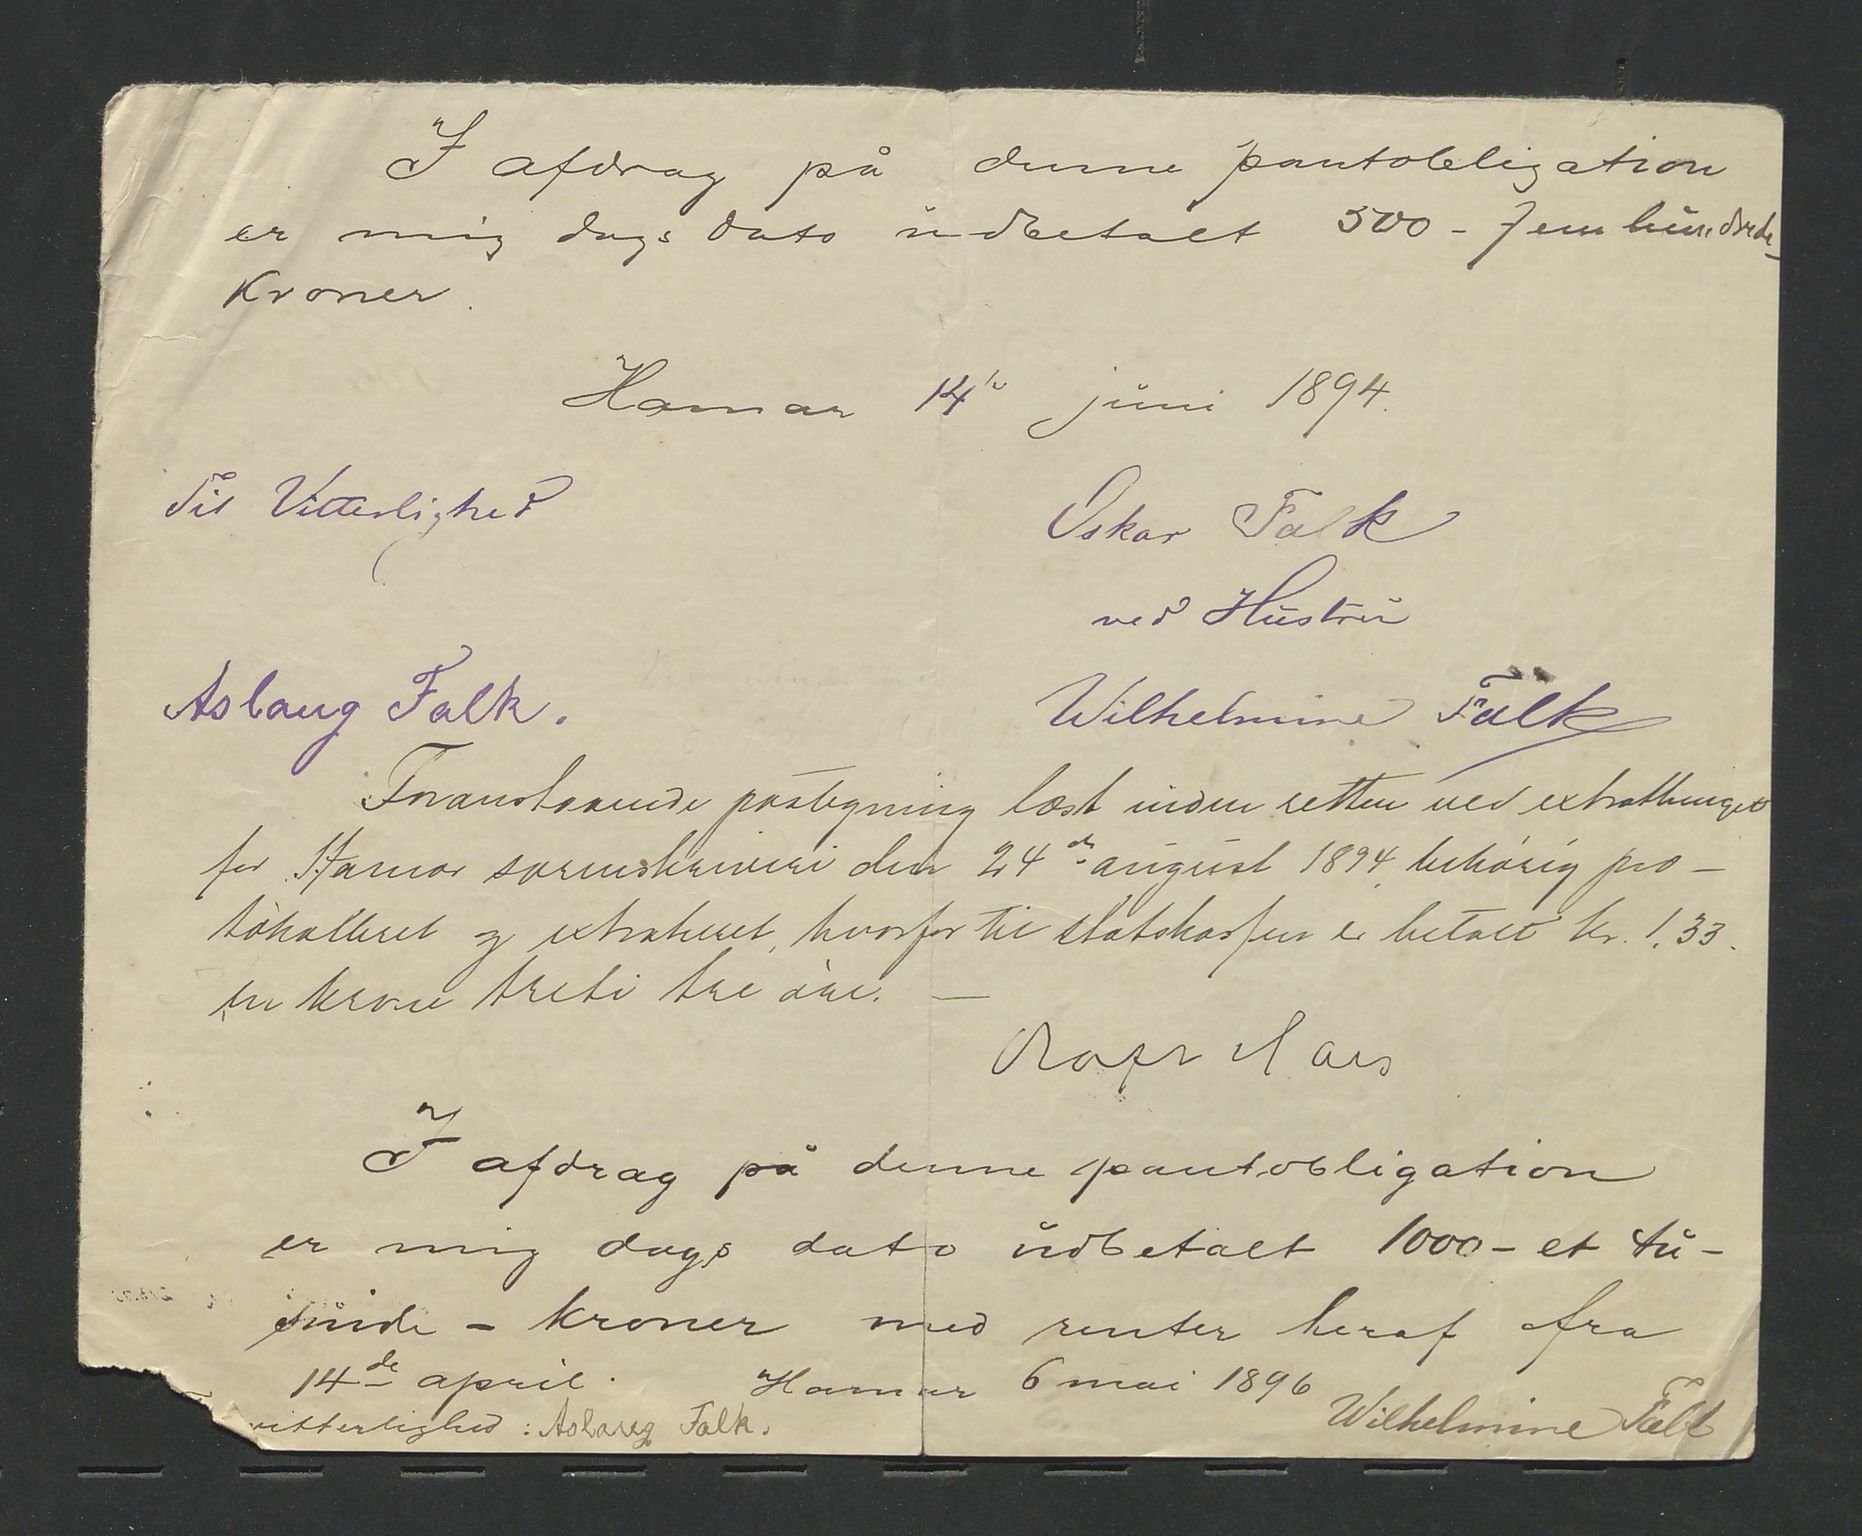 I afdrag på denne pantobligation
er mig dags dato udbetalt 500 - femhundrede
Kroner.
Hamar 14de juni 1894.
Til Vitterlighed
Oskar Falk
ved Hustru
Aslaug Falk.
Wilhelmine Falk
Foranstaaende paategning læst inden retten ved extrathinget
for Hamar sorenskriveri den 24de august 1894, behörig pro-
tokolleret og extraheret, hvorfor til statskassen er betalt kr. 1.33.
en krone treti tre öre. —
I afdrag på denne pantobligation
er mig dags dato udbetalt 1000 - et tu-
sinde - kroner med renter heraf fra
14de april. Hamar 6 mai 1896
vitterlighed: Aslaug Falk.
Wilhelmine Falk